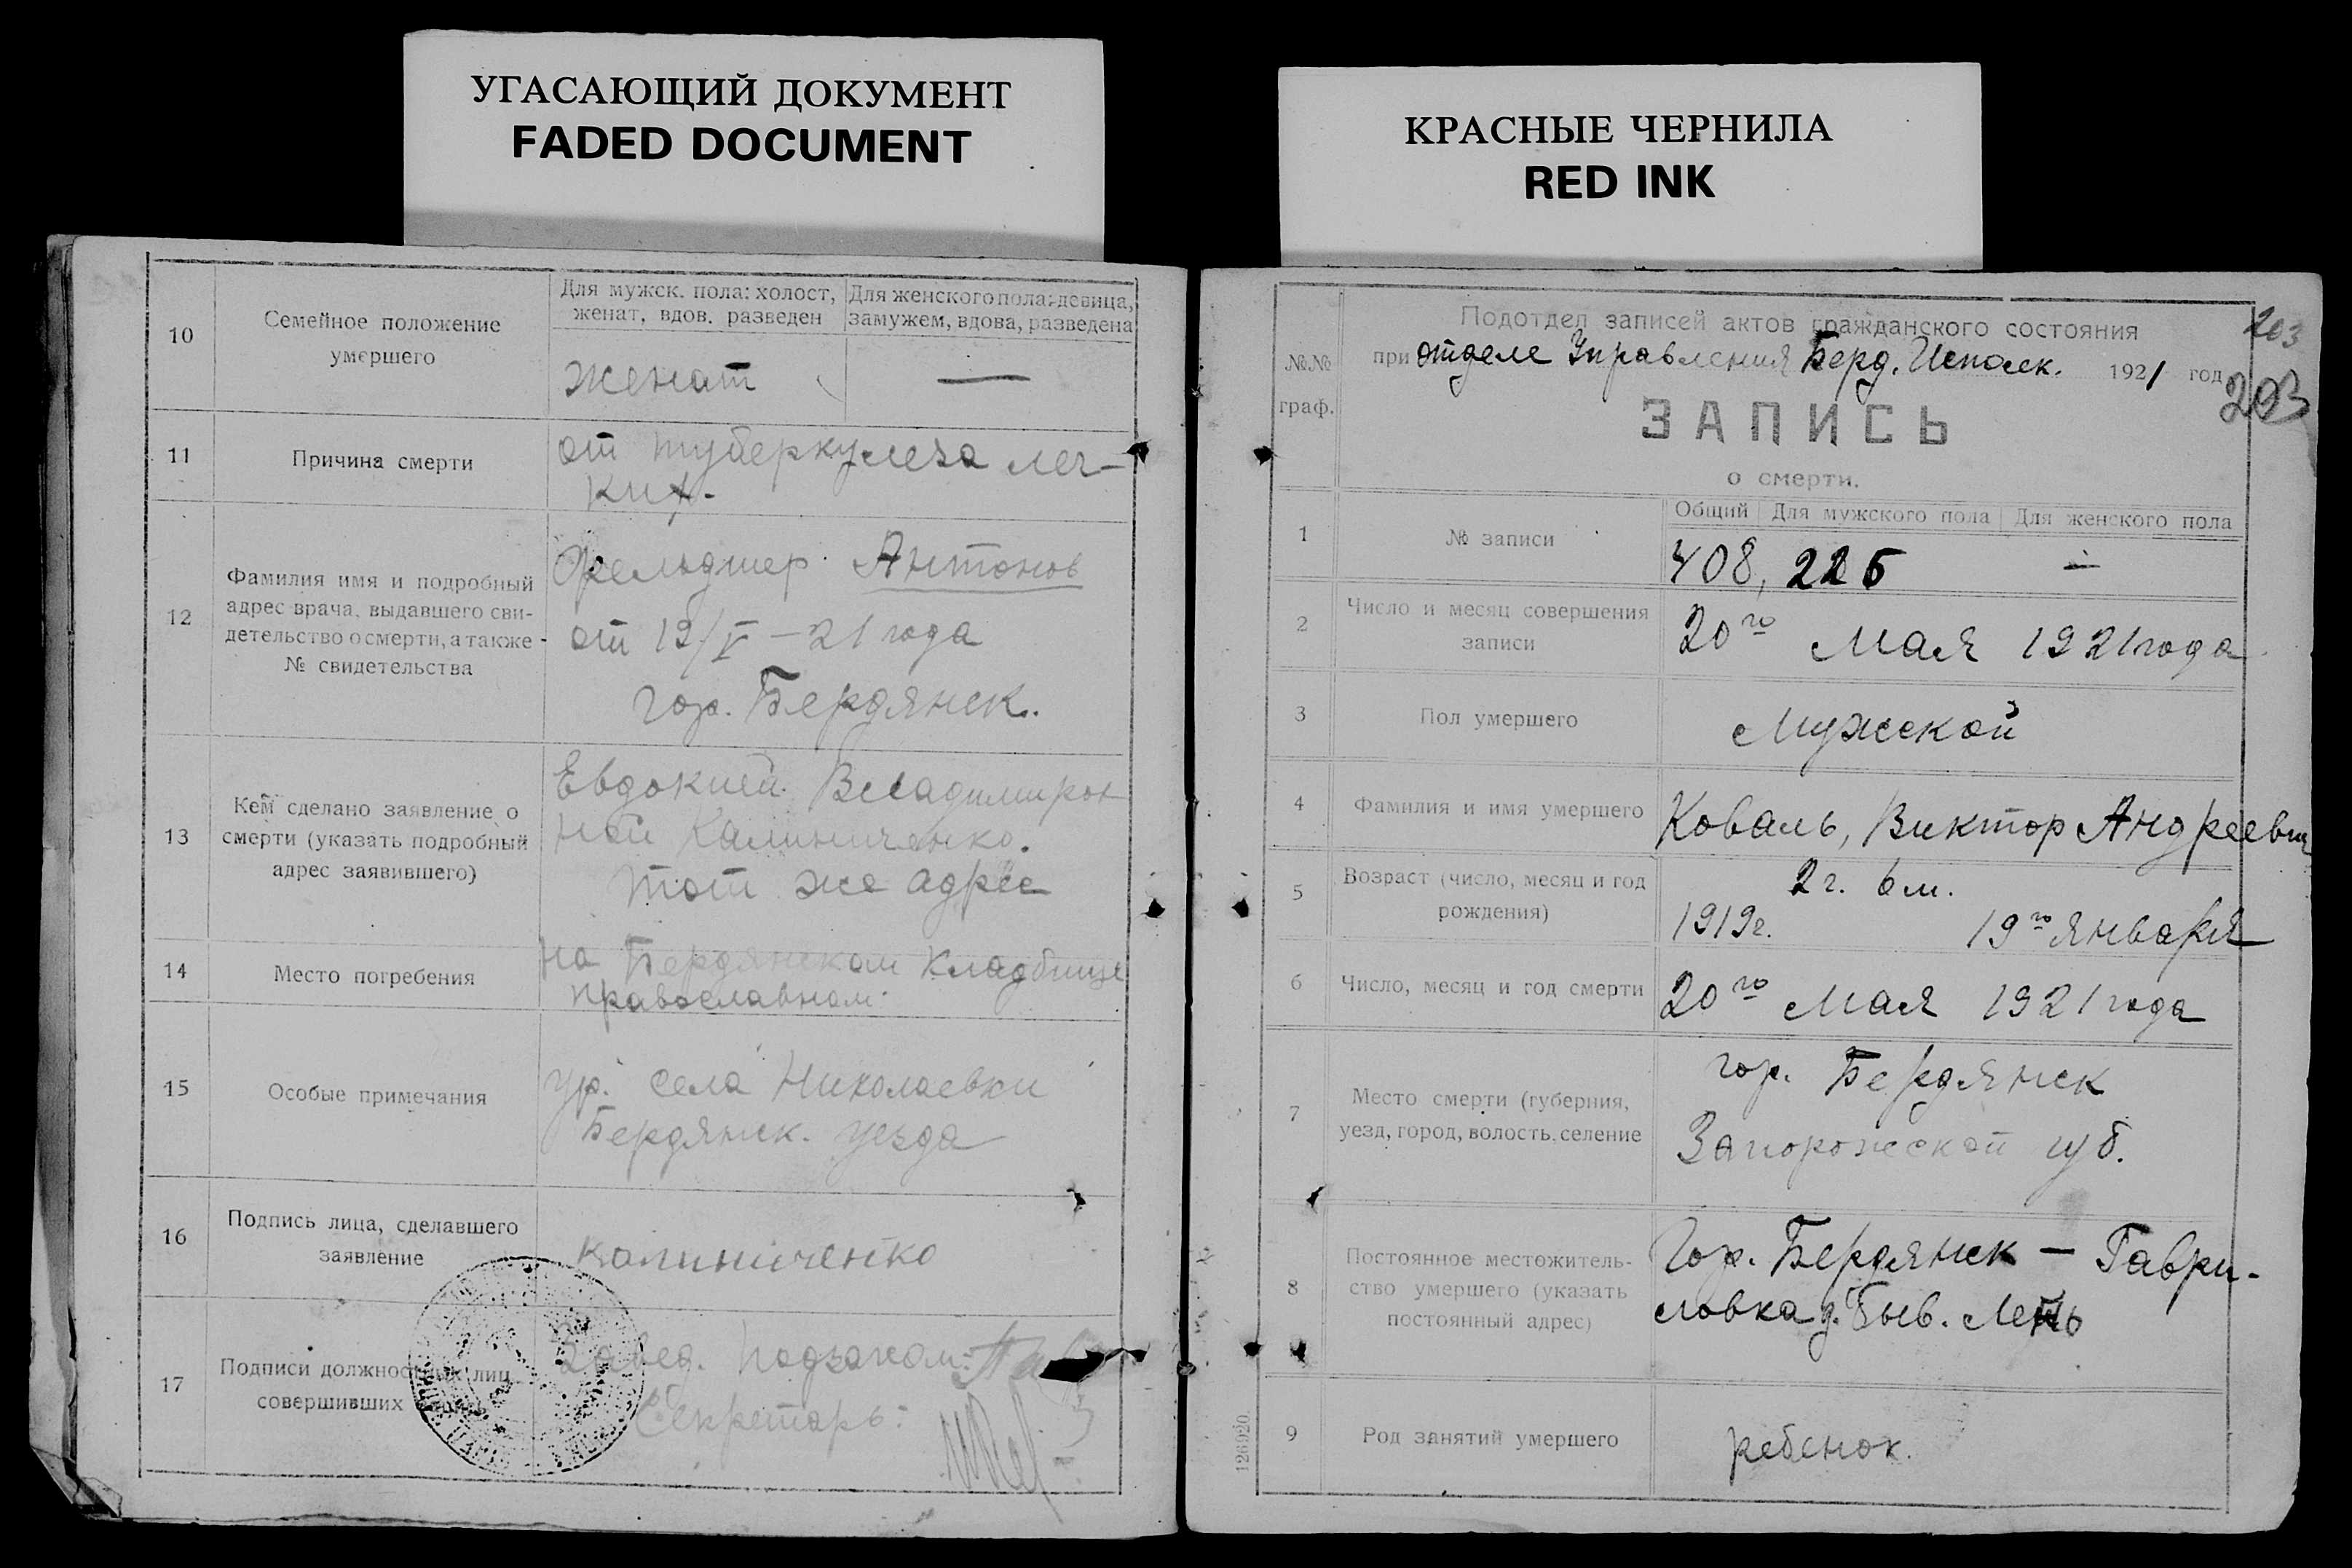 УГАСАЮЩИЙ ДОКУМЕНТ
FADED DOCUMENT
10
Семейное положение
умершего
Для мужск. пола: холост,
женат, вдов. разведен
Для женского пола: девица,
замужем, вдова, разведена
женат
—
11
Причина смерти
от туберкулеза лег-
ких.
12
Фамилия имя и подробный
адрес врача, выдавшего сви-
детельство о смерти, а также
№ свидетельства
Фельдшер Антонов
от 19/V – 21 года
гор. Бердянск.
13
Кем сделано заявление о
смерти (указать подробный
адрес заявившего)
Евдокией Владимиров
ной Калиниченко.
Тот же адрес
14
Место погребения
на Бердянском кладбище
православном.
15
Особые примечания
ур. села Николаевки
Бердянск. уезда
16
Подпись лица, сделавшего
заявление
Калиниченко
17
Подписи должностных лиц
совершивших
Завед. Подзагсом:
Секретарь:
КРАСНЫЕ ЧЕРНИЛА
RED INK
203
203
№№
граф.
Подотдел записей актов гражданского состояния
при отделе Управления Берд. Исполк. 1921 год
ЗАПИСЬ
о смерти.
1
№ записи
Общий Для мужского пола Для женского пола
408, 226 —
2
Число и месяц совершения
записи
20го Мая 1921 года
3
Пол умершего
Мужской
4
Фамилия и имя умершего
Коваль, Виктор Андреевич
5
Возраст (число, месяц и год
рождения)
2 г. 6 м.
1919 г. 19го Января
6
Число, месяц и год смерти
20го Мая 1921 года
7
Место смерти (губерния,
уезд, город, волость, селение
гор. Бердянск
Запорожской губ.
8
Постоянное местожитель-
ство умершего (указать
постоянный адрес)
Гор. Бердянск — Гаври-
ловка д. быв.
9
Род занятий умершего
ребенок.
126920